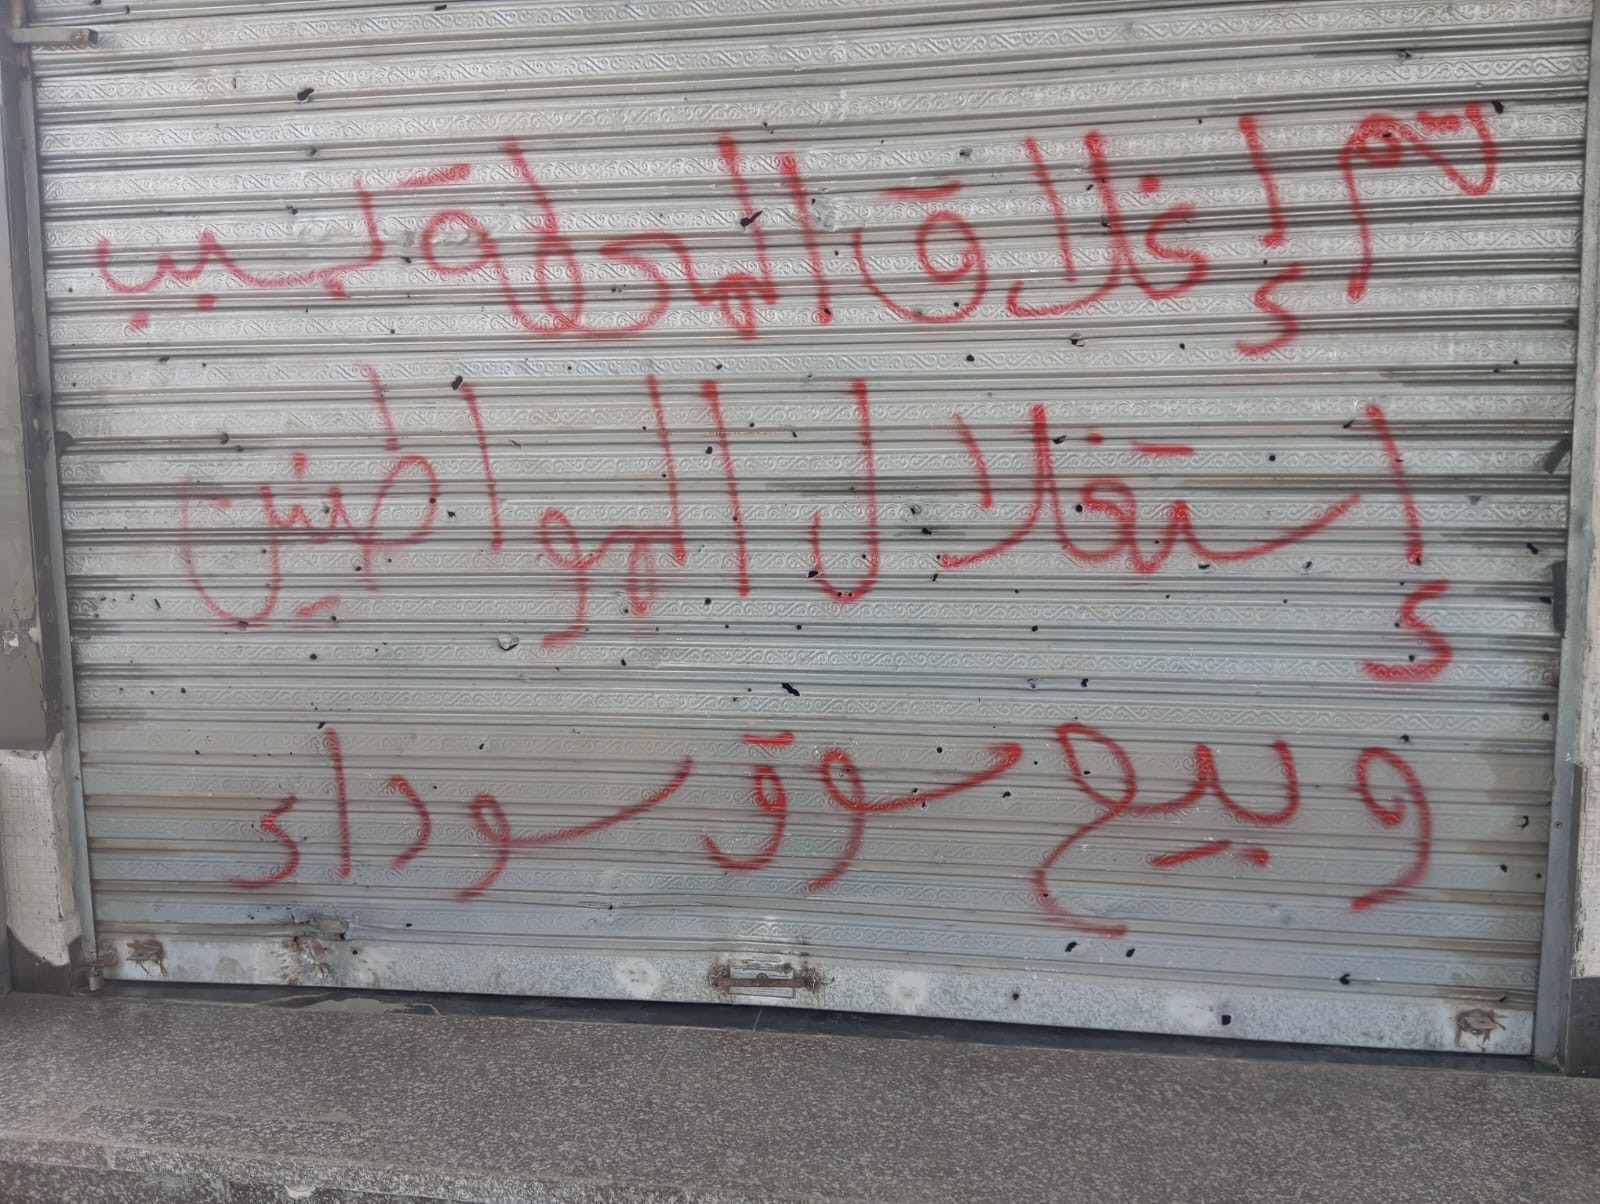 تم إغلاق المحطة بسبب
إستغلال المواطنين
وبيع سوق سوداء